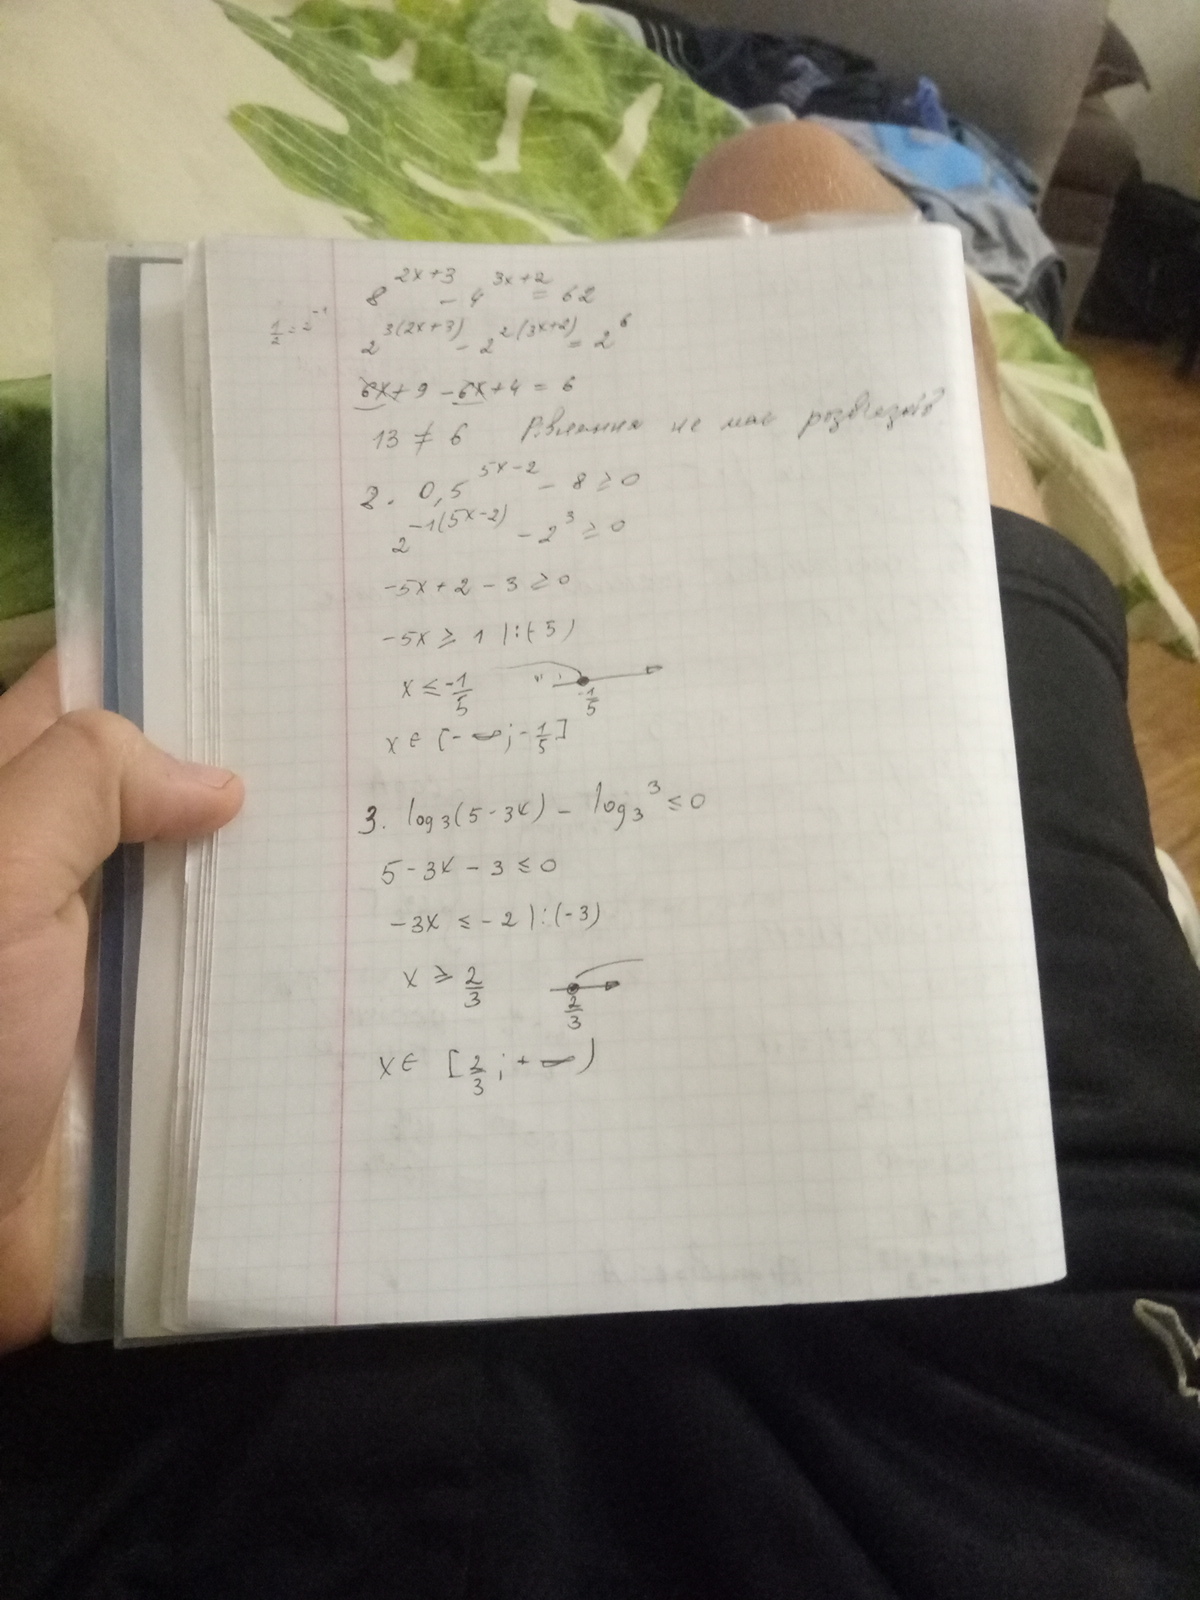 8^{2x+3} - 4^{3x+2} = 62
\frac{1}{2} = 2^{-1}
2^{3(2x+3)} - 2^{2(3x+2)} = 2^6
6x + 9 - 6x + 4 = 6
13 ≠ 6 Рівняння не має розв'язків
2. 0,5^{5x-2} - 8 ≥ 0
2^{-1(5x-2)} - 2^3 ≥ 0
-5x + 2 - 3 ≥ 0
-5x ≥ 1 |:(-5)
x ≤ -\frac{1}{5}
-\frac{1}{5}
x ∈ [-∞; -\frac{1}{5}]
3. log_3(5-3x) - log_3^3 ≤ 0
5 - 3x - 3 ≤ 0
-3x ≤ -2 |:(-3)
x ≥ \frac{2}{3}
\frac{2}{3}
x ∈ [\frac{2}{3}; +∞)